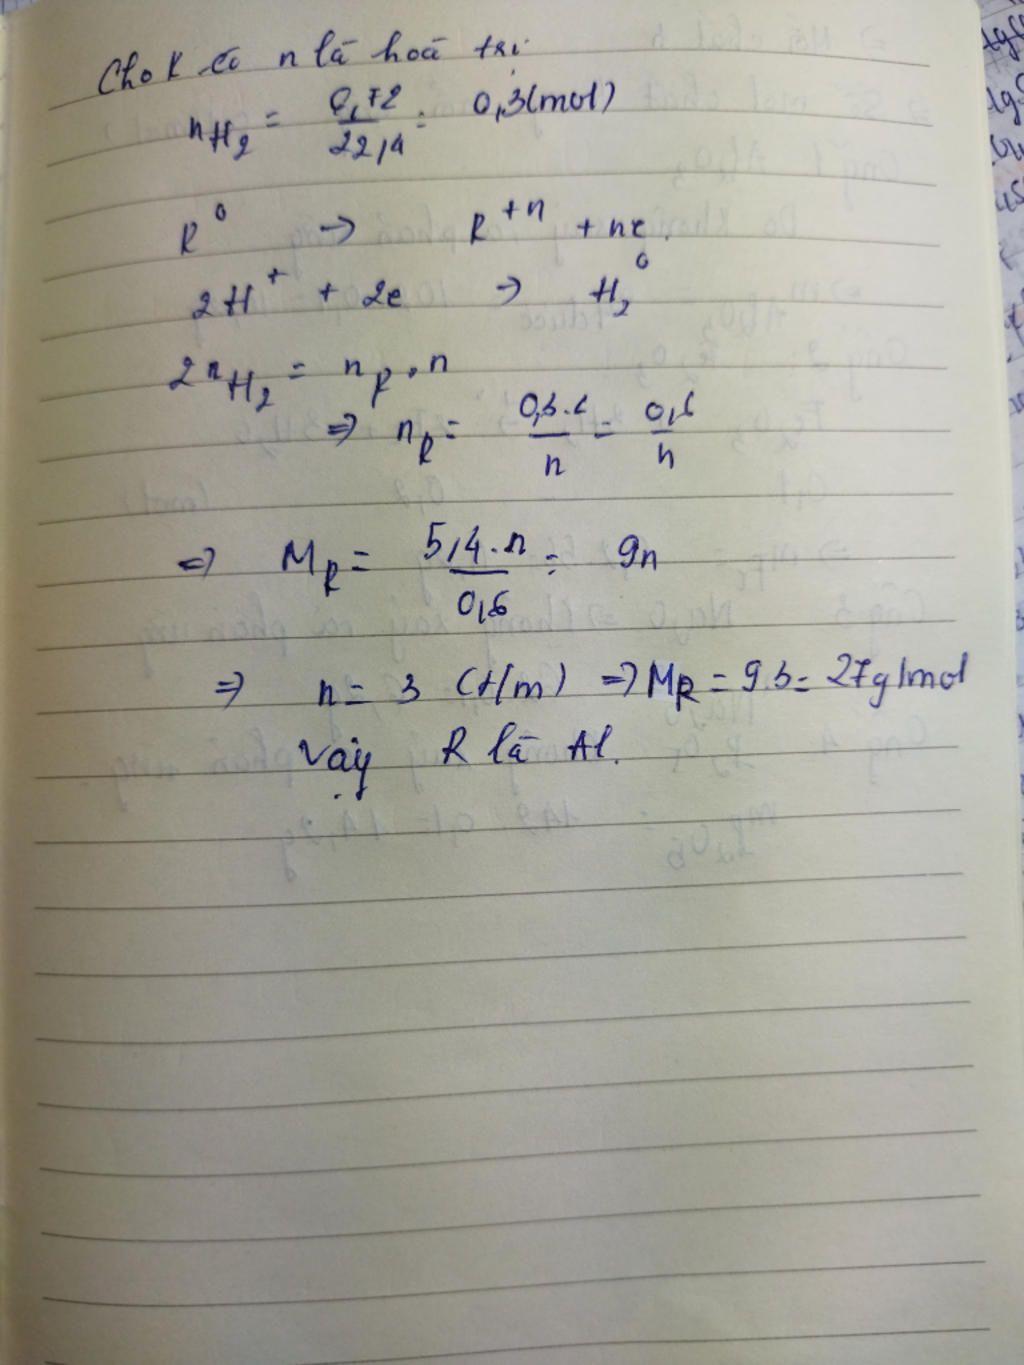 Cho R có n là hoá trị
nH2 = 6,72/22,4 = 0,3(mol)
R⁰ → R⁺ⁿ + ne.
2H⁺ + 2e → H₂⁰
2nH2 = nR . n
⇒ nR = 0,3.2/n = 0,6/n
⇒ MR = 5,4.n/0,6 = 9n
⇒ n = 3 (t/m) ⇒ MR = 9.3 = 27g/mol
Vậy R là Al.